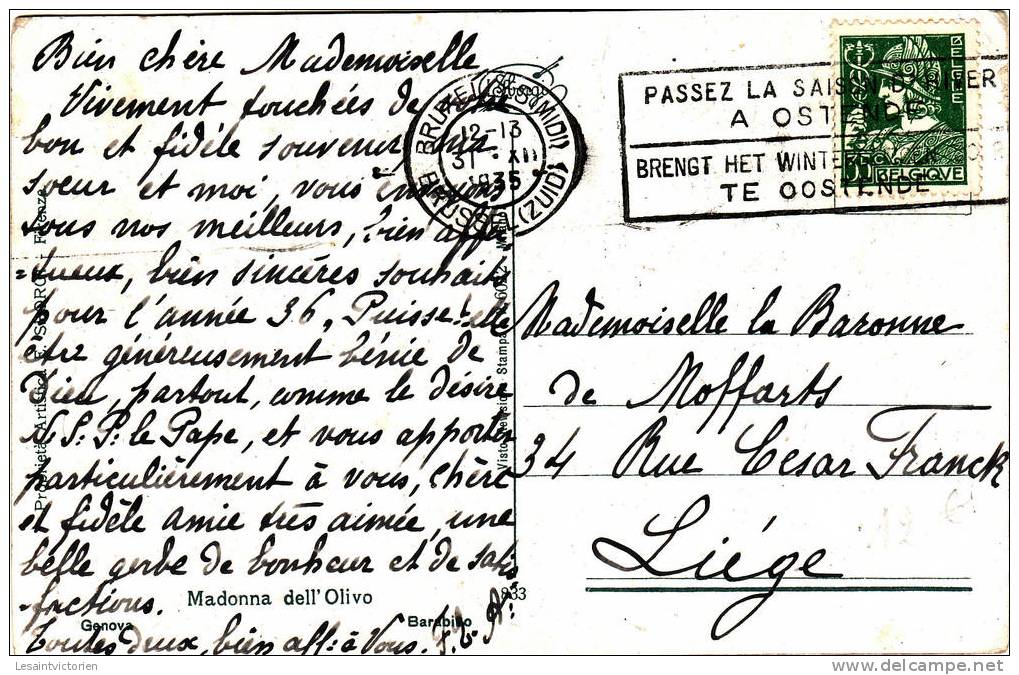 Bien chère Mademoiselle
Vivement touchées de votre
bon et fidéle souvenir, ma
soeur et moi, vous envoyons
tous nos meilleurs, bien affec
=tueux, bien sincéres souhaits
pour l'année 36, Puisse-elle
etre généreusement bénie de
Dieu, partout, comme le désire
N. S. P. le Pape, et vous apporter
particulièrement à vous, chère
et fidèle amie très aimée, une
belle gerbe de bonheur et de satis
-factions.
Toutes deux, bien aff: à Vous.
Madonna dell'Olivo
Genova
Barabino
833
Proprietà Artistica E. SBORGI - Firenze
Visto Revisione Stampa
BRUXELLES (MIDI)
12-13
31 XII
1935
BRUSSEL (ZUID)
PASSEZ LA SAISON D'HIVER
A OSTENDE
BRENGT HET WINTER
TE OOSTENDE
BELGIE
BELGIQUE
Mademoiselle la Baronne
de Moffarts
34 Rue Cesar Franck
Liége
Lesaintvictorien
http://www.delcampe.net